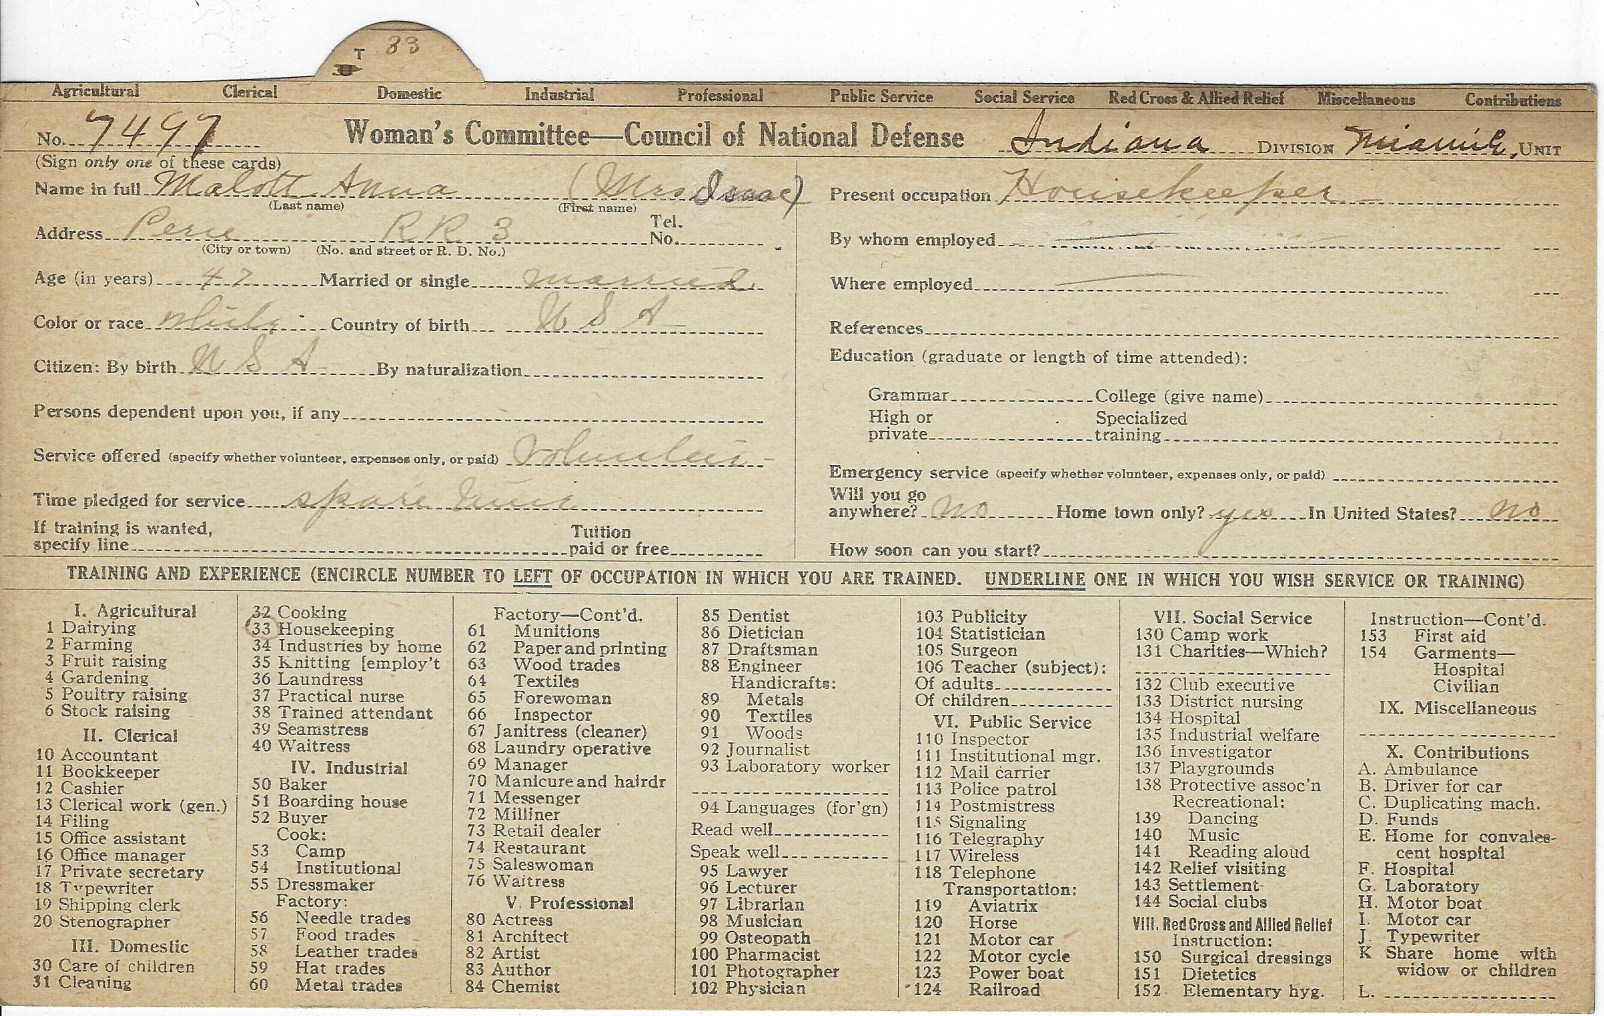 T 33
Agricultural Clerical Domestic Industrial Professional Public Service Social Service Red Cross & Allied Relief Miscellaneous Contributions
No. 7497 Woman's Committee—Council of National Defense Indiana DIVISION Miami Co. UNIT
(Sign only one of these cards)
Name in full Malott Anna (Mrs Isaac)
(Last name) (First name)
Address Peru RR 3 Tel. No.
(City or town) (No. and street or R. D. No.)
Age (in years) 47 Married or single married
Color or race white Country of birth U S A
Citizen: By birth U S A By naturalization
Persons dependent upon you, if any
Service offered (specify whether volunteer, expenses only, or paid) volunteer
Time pledged for service spare time
If training is wanted,
specify line Tuition paid or free
Present occupation Housekeeper
By whom employed
Where employed
References
Education (graduate or length of time attended):
Grammar College (give name)
High or private Specialized training
Emergency service (specify whether volunteer, expenses only, or paid)
Will you go
anywhere? no Home town only? yes In United States? no
How soon can you start?
TRAINING AND EXPERIENCE (ENCIRCLE NUMBER TO LEFT OF OCCUPATION IN WHICH YOU ARE TRAINED. UNDERLINE ONE IN WHICH YOU WISH SERVICE OR TRAINING)
I. Agricultural
1 Dairying
2 Farming
3 Fruit raising
4 Gardening
5 Poultry raising
6 Stock raising
II. Clerical
10 Accountant
11 Bookkeeper
12 Cashier
13 Clerical work (gen.)
14 Filing
15 Office assistant
16 Office manager
17 Private secretary
18 Typewriter
19 Shipping clerk
20 Stenographer
III. Domestic
30 Care of children
31 Cleaning
32 Cooking
33 Housekeeping
34 Industries by home
35 Knitting [employ't
36 Laundress
37 Practical nurse
38 Trained attendant
39 Seamstress
40 Waitress
IV. Industrial
50 Baker
51 Boarding house
52 Buyer
Cook:
53 Camp
54 Institutional
55 Dressmaker
Factory:
56 Needle trades
57 Food trades
58 Leather trades
59 Hat trades
60 Metal trades
Factory—Cont'd.
61 Munitions
62 Paper and printing
63 Wood trades
64 Textiles
65 Forewoman
66 Inspector
67 Janitress (cleaner)
68 Laundry operative
69 Manager
70 Manicure and hairdr
71 Messenger
72 Milliner
73 Retail dealer
74 Restaurant
75 Saleswoman
76 Waitress
V. Professional
80 Actress
81 Architect
82 Artist
83 Author
84 Chemist
85 Dentist
86 Dietician
87 Draftsman
88 Engineer
Handicrafts:
89 Metals
90 Textiles
91 Woods
92 Journalist
93 Laboratory worker
94 Languages (for'gn)
Read well
Speak well
95 Lawyer
96 Lecturer
97 Librarian
98 Musician
99 Osteopath
100 Pharmacist
101 Photographer
102 Physician
103 Publicity
104 Statistician
105 Surgeon
106 Teacher (subject):
Of adults
Of children
VI. Public Service
110 Inspector
111 Institutional mgr.
112 Mail carrier
113 Police patrol
114 Postmistress
115 Signaling
116 Telegraphy
117 Wireless
118 Telephone
Transportation:
119 Aviatrix
120 Horse
121 Motor car
122 Motor cycle
123 Power boat
124 Railroad
VII. Social Service
130 Camp work
131 Charities—Which?
132 Club executive
133 District nursing
134 Hospital
135 Industrial welfare
136 Investigator
137 Playgrounds
138 Protective assoc'n
Recreational:
139 Dancing
140 Music
141 Reading aloud
142 Relief visiting
143 Settlement
144 Social clubs
VIII. Red Cross and Allied Relief
Instruction:
150 Surgical dressings
151 Dietetics
152 Elementary hyg.
Instruction—Cont'd.
153 First aid
154 Garments—
Hospital
Civilian
IX. Miscellaneous
X. Contributions
A. Ambulance
B. Driver for car
C. Duplicating mach.
D. Funds
E. Home for convales-
cent hospital
F. Hospital
G. Laboratory
H. Motor boat
I. Motor car
J. Typewriter
K Share home with
widow or children
L.